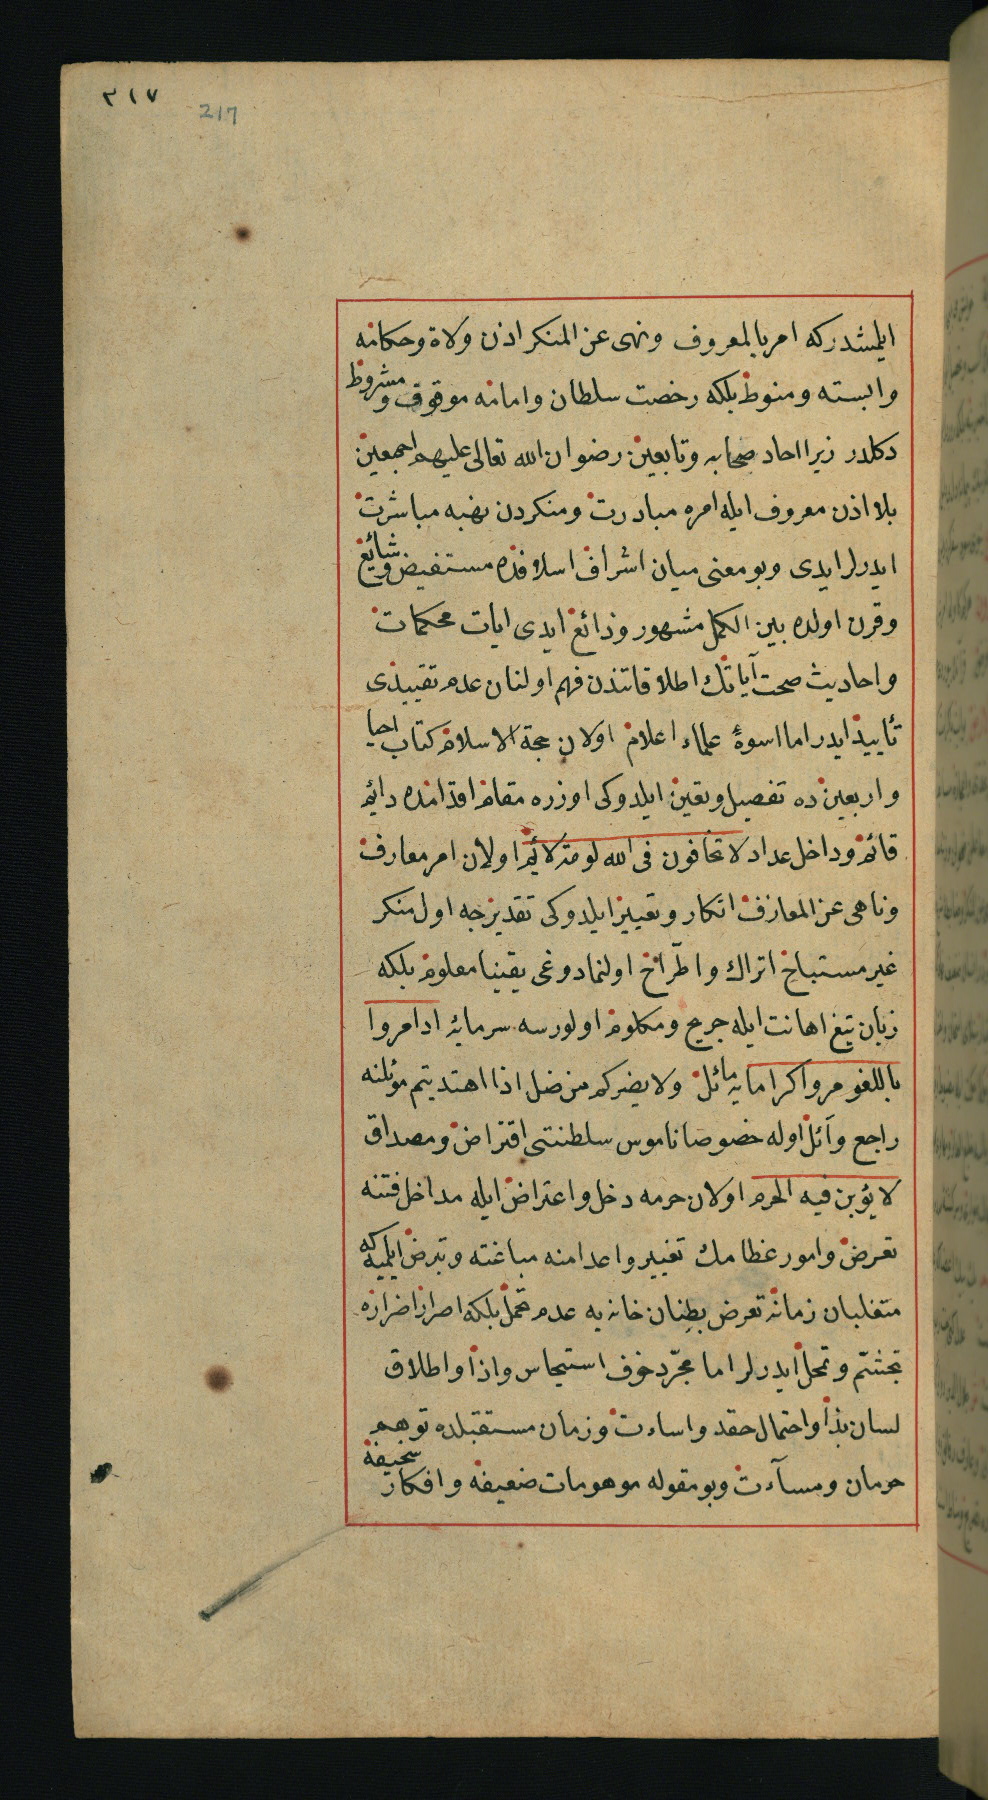 ٢١٧
217
ايلمشدركه امر بالمعروف ونهى عن المنكر اذن ولاة وحكامه
وابسته ومنوط بلكه رخصت سلطان وامامه موقوف ومشروط
دكلدر زيرا احاد صحابه وتابعين رضوان الله تعالى عليهم اجمعين
بلا اذن معروف ايله امره مبادرت ومنكردن نهيه مباشرت
ايدرلر ايدى وبو معنى ميان اشراف اسلافده مستفيض وشايع
وقرن اولده بين الكمل مشهور وذائع ايدى ايات محكمات
واحاديث صحت آياتك اطلاقاتندن فهم اولنان عدم تقييدى
تأييد ايدر اما اسوۀ علماء اعلام اولان حجة الاسلام كتاب احيا
واربعين ده تفصيل وتعين ايلدوكى اوزره مقام اقدامده دائم
قائم وداخل عداد لا تخافون فى الله لومة لائم اولان امر معارف
وناهى عن المعازف انكار وتغيير ايلدوكى تقديرجه اول منكر
غير مستباح اتراك واطّراح اولنمادوغى يقينا معلوم بلكه
زبان تيغ اهانت ايله جريح ومكلوم اولورسه سرمايۀ اذا مروا
باللغو مروا كراما يه مائل ولا يضركم من ضل اذا اهتديتم موئلنه
راجع وآئل اوله خصوصا ناموس سلطنتى اقتراض ومصداق
لا يؤبن فيه الحرم اولان حرمه دخل واعتراض ايله مداخل فتنه
تعرض وامور عظامك تغيير واعدامنه مباغته وتبرض ايلميه كه
متغلبان زمانه تعرض بطنان خانه يه عدم تحمل بلكه اصرار اضراره
تجشّم وتمحل ايدرلر اما مجرّد خوف استيحاس واذا واطلاق
لسان بذا واحتمال حقد واساءت وزمان مستقبلده توهم
حرمان ومسآءت وبو مقوله موهومات ضعيفه وافكار سخيفه